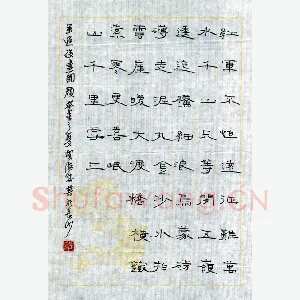 紅軍不怕遠征難萬
水千山只等閒五嶺
逶迤騰細浪烏蒙磅
礴走泥丸金沙水拍
雲崖暖大渡橋橫鐵
索寒更喜岷
山千里雪三
軍過後盡開顏
Shufawang.CN